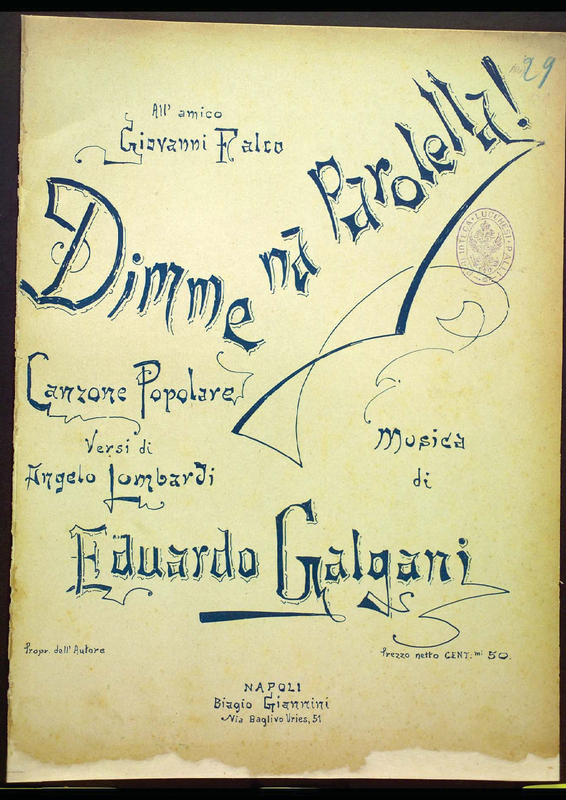 29
All' amico
Giovanni Falco
Dimme nà Parolella!
BIBLIOTECA · LUCCHESI · PALLI
Canzone Popolare
Versi di
Angelo Lombardi
Musica
di
Eduardo Galgani
Propr. dell' Autore
Prezzo netto CENT.mi 50.
NAPOLI
Biagio Giannini
Via Baglivo Uries, 51